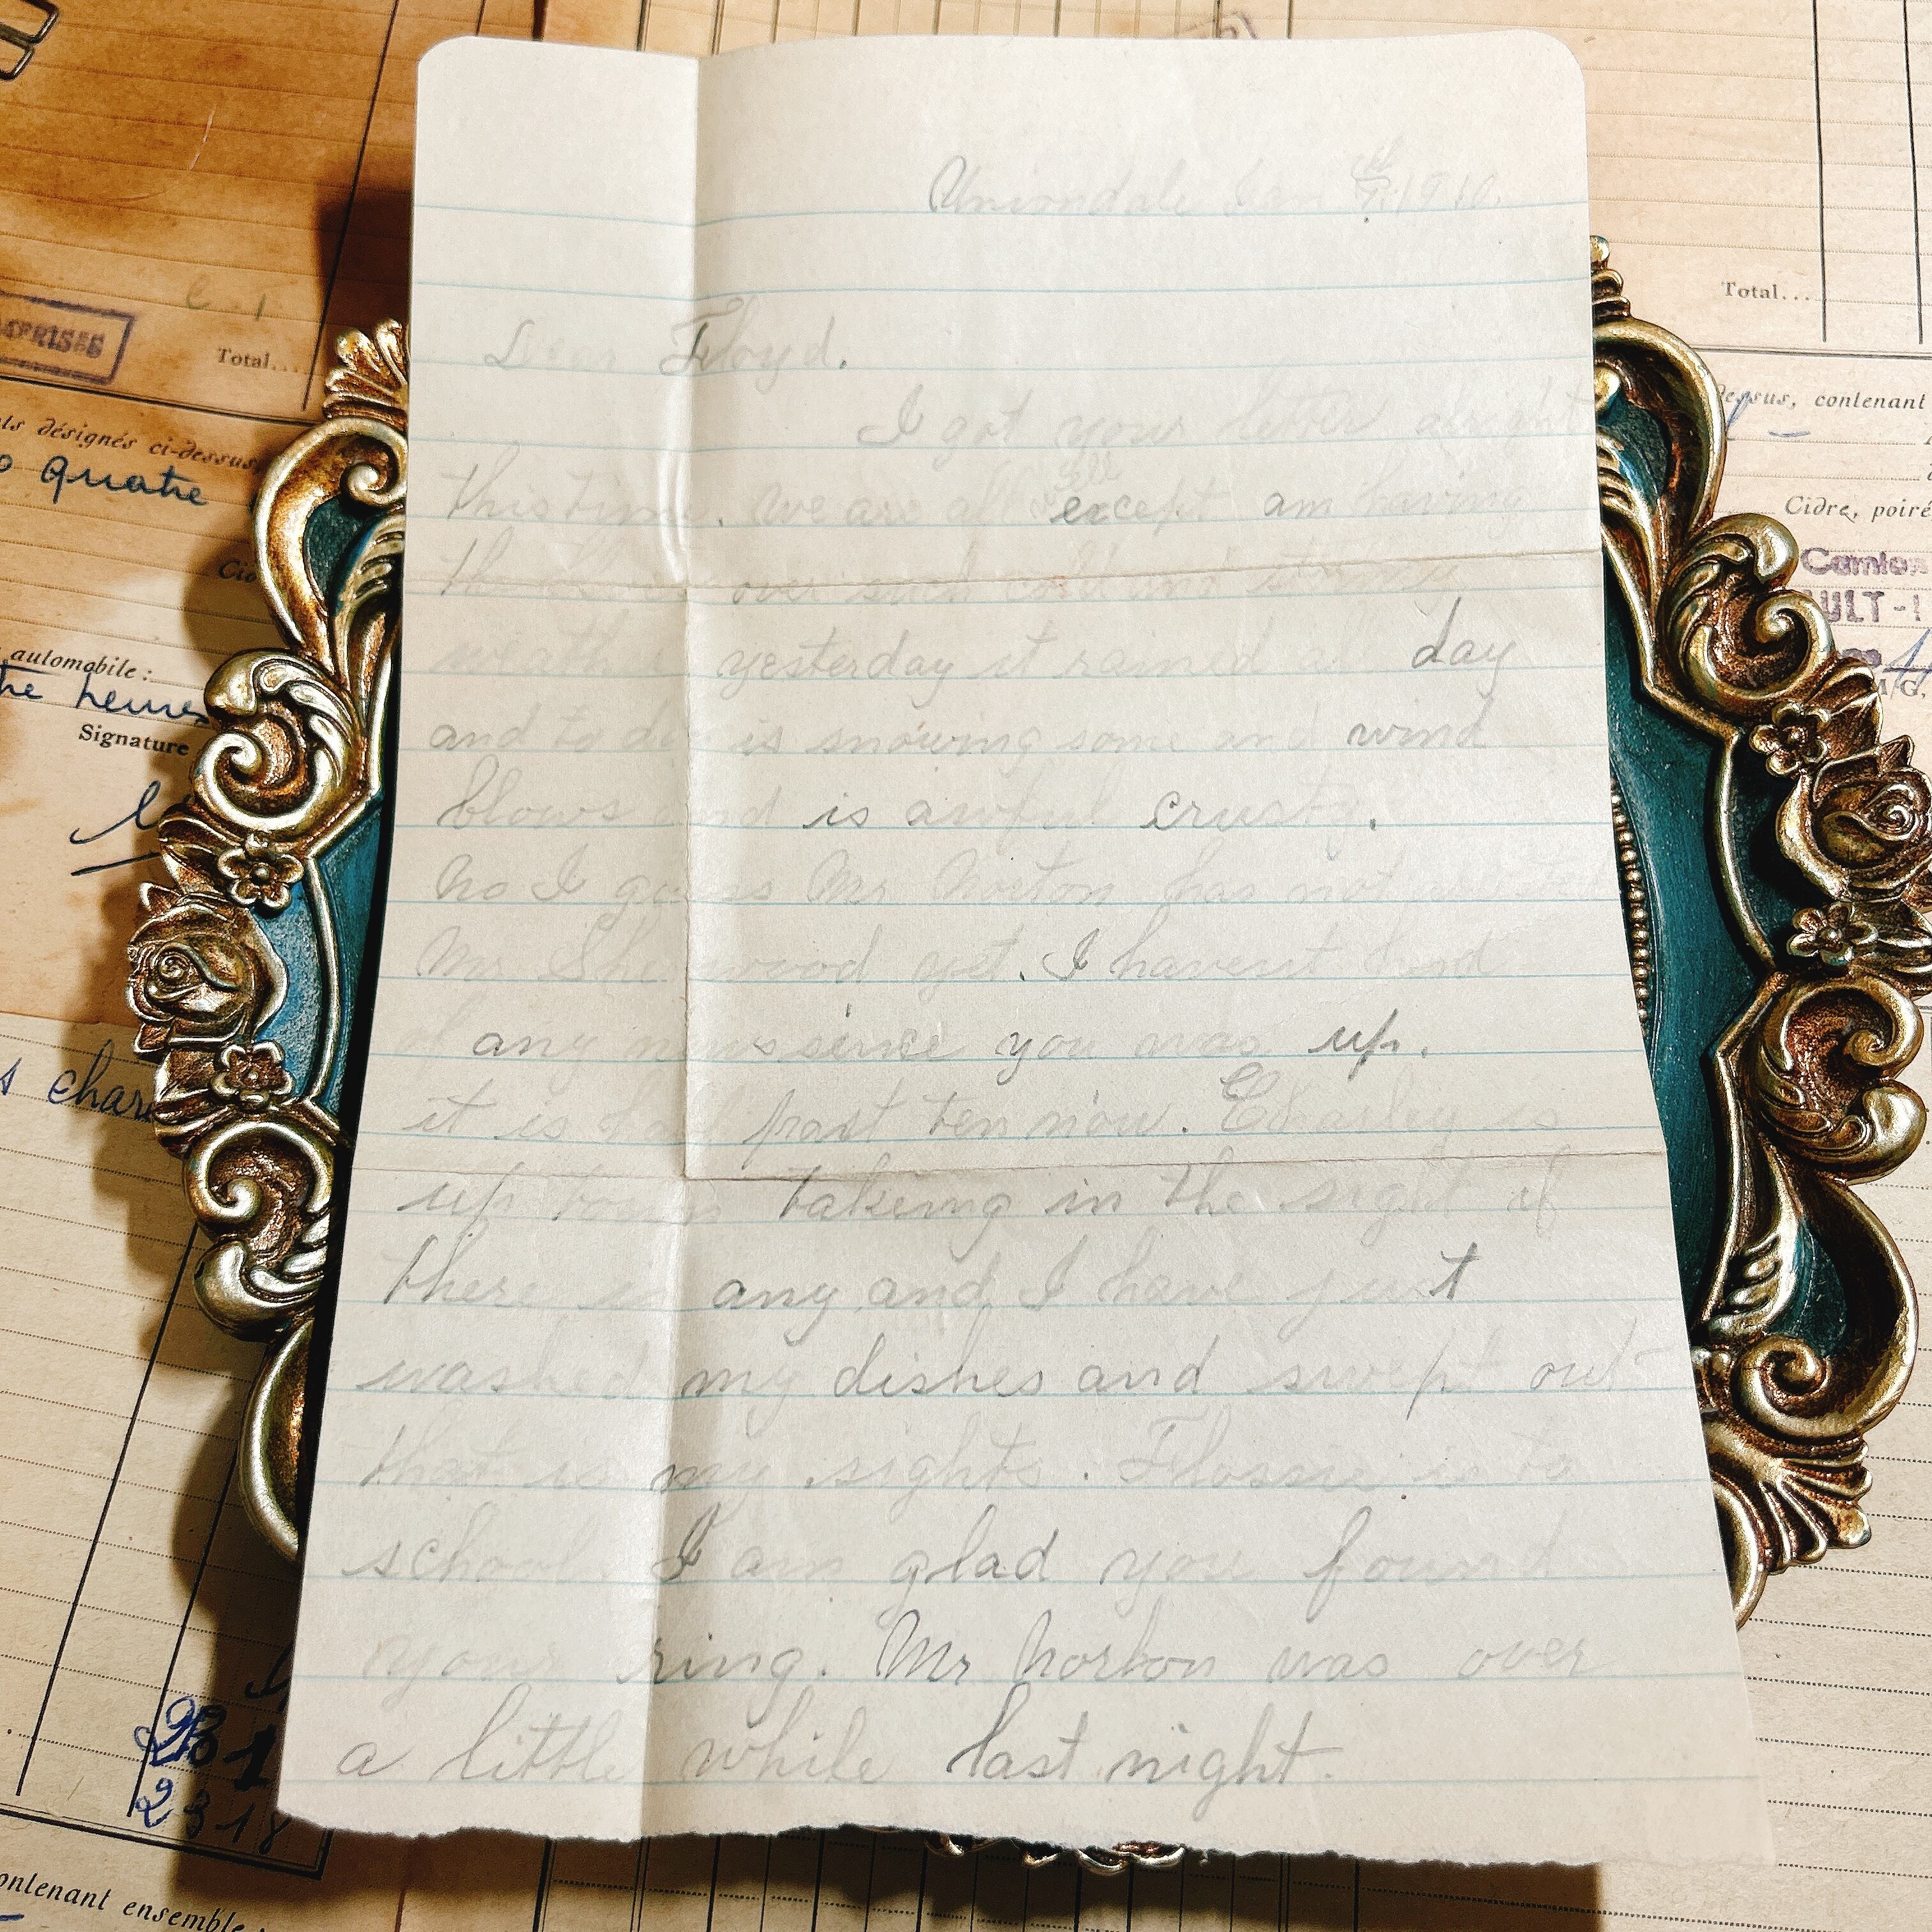 Uniondale Jan 1910.
Dear Floyd.
I got your letter alright
this time. we are all well except am having
over such cold and stormy
weather yesterday it rained all day
and to day is snowing some and wind
blows and is awful crusty.
No I guess Mr Norton has not
Mr Sherwood yet. I havent heard
of any news since you was up.
it is half past ten now. Charley is
up town takeing in the sight if
there is any and I have just
washed my dishes and swept out
that is my sights. Flossie is to
school. I am glad you found
your ring. Mr Norton was over
a little while last night.
Total...
EPRISES
Total...
désignés ci-dessus,
quatre
automobile :
heures
Signature
231
2318
contenant ensemble :
contenant
Cidre, poiré
Camion
ULT-